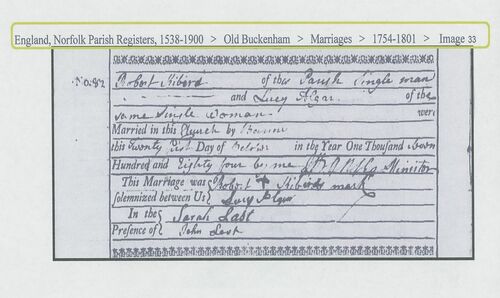 England, Norfolk Parish Registers, 1538-1900 > Old Buckenham > Marriages > 1754-1801 > Image 33
No. 82 Robert Hibird of this Parish Single man
and Lucy Algar of the
same Single Woman were
Married in this Church by Banns
this Twenty First Day of October in the Year One Thousand Seven
Hundred and Eighty four by me Minister
This Marriage was Robert + Hibirds mark
solemnized between Us Lucy Algar
In the Sarah Last
Presence of John Last